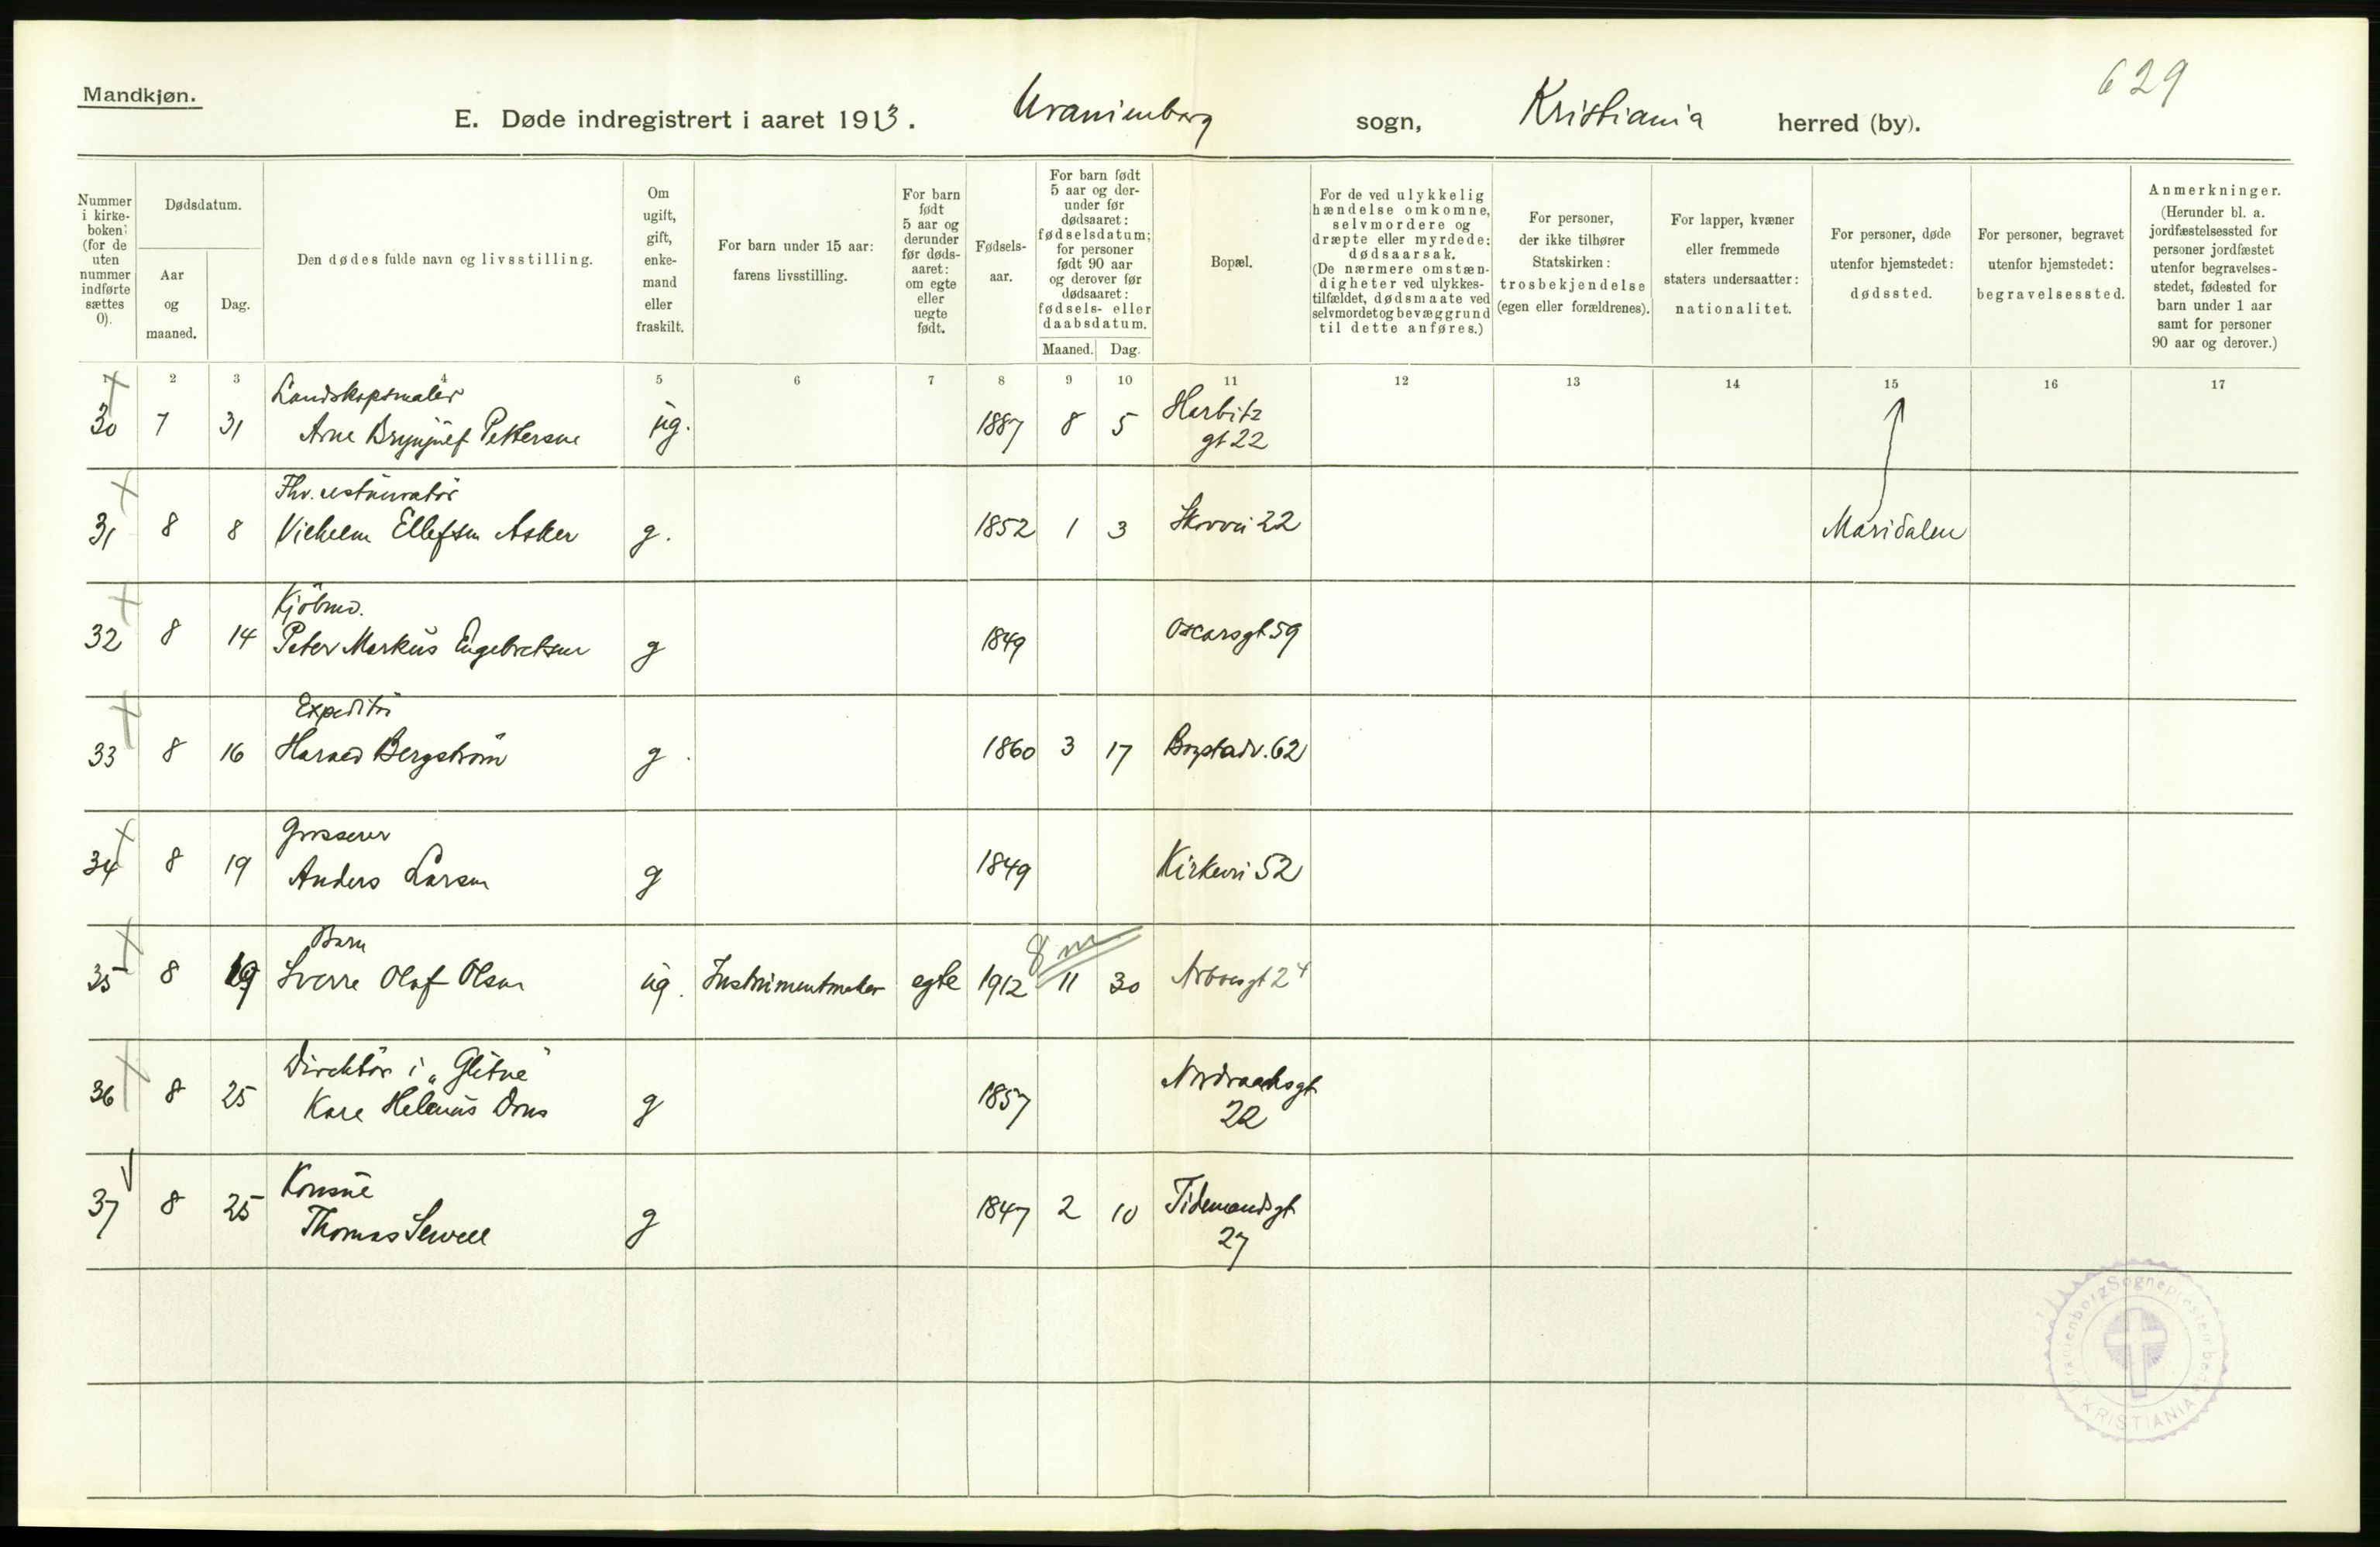 629
Mandkjøn.
E. Døde indregistrert i aaret 1913. Uranienborg sogn, Kristiania herred (by).
Nummer
i kirke-
boken
(for de
uten
nummer
indførte
sættes
0).
Dødsdatum.
Aar
og
maaned.
Dag.
Den dødes fulde navn og livsstilling.
Om
ugift,
gift,
enke-
mand
eller
fraskilt.
For barn under 15 aar:
farens livsstilling.
For barn
født
5 aar og
derunder
før døds-
aaret:
om egte
eller
uegte
født.
Fødsels-
aar.
For barn født
5 aar og der-
under før
dødsaaret:
fødselsdatum;
for personer
født 90 aar
og derover før
dødsaaret:
fødsels- eller
daabsdatum.
Maaned. Dag.
Bopæl.
For de ved ulykkelig
hændelse omkomne,
selvmordere og
dræpte eller myrdede:
dødsaarsak.
(De nærmere omstæn-
digheter ved ulykkes-
tilfældet, dødsmaate ved
selvmordet og bevæggrund
til dette anføres.)
For personer,
der ikke tilhører
Statskirken:
trosbekjendelse
(egen eller forældrenes).
For lapper, kvæner
eller fremmede
staters undersaatter:
nationalitet.
For personer, døde
utenfor hjemstedet:
dødssted.
For personer, begravet
utenfor hjemstedet:
begravelsessted.
Anmerkninger.
(Herunder bl. a.
jordfæstelsessted for
personer jordfæstet
utenfor begravelses-
stedet, fødested for
barn under 1 aar
samt for personer
90 aar og derover.)
2 3 4 5 6 7 8 9 10 11 12 13 14 15 16 17
Landskapsmaler
30 7 31 Arne Brynjulf Pettersen ug. 1887 8 5 Harbitz
gt 22
Fhv. restauratør
31 8 8 Vilhelm Ellefsen Asker g. 1852 1 3 Skovvei 22 Maridalen
Kjøbmd.
32 8 14 Peter Markus Engebretsen g 1849 Oscarsgt 59
Expeditør
33 8 16 Harald Bergstrøm g 1860 3 17 Bogstadv. 62
Grosserer
34 8 19 Anders Larsen g 1849 Kirkevei 52
Barn 8 m
35 8 19 Sverre Olaf Olsen ug. Instrumentmaker egte 1912 11 30 24
Direktør i „Glitne"
36 8 25 Kare Dons g 1857 Nordraaksgt
22
Konsul
37 8 25 Thomas Sewell g 1847 2 10 Tidemandsgt
27
Uranienborg Sogneprestembede
KRISTIANIA